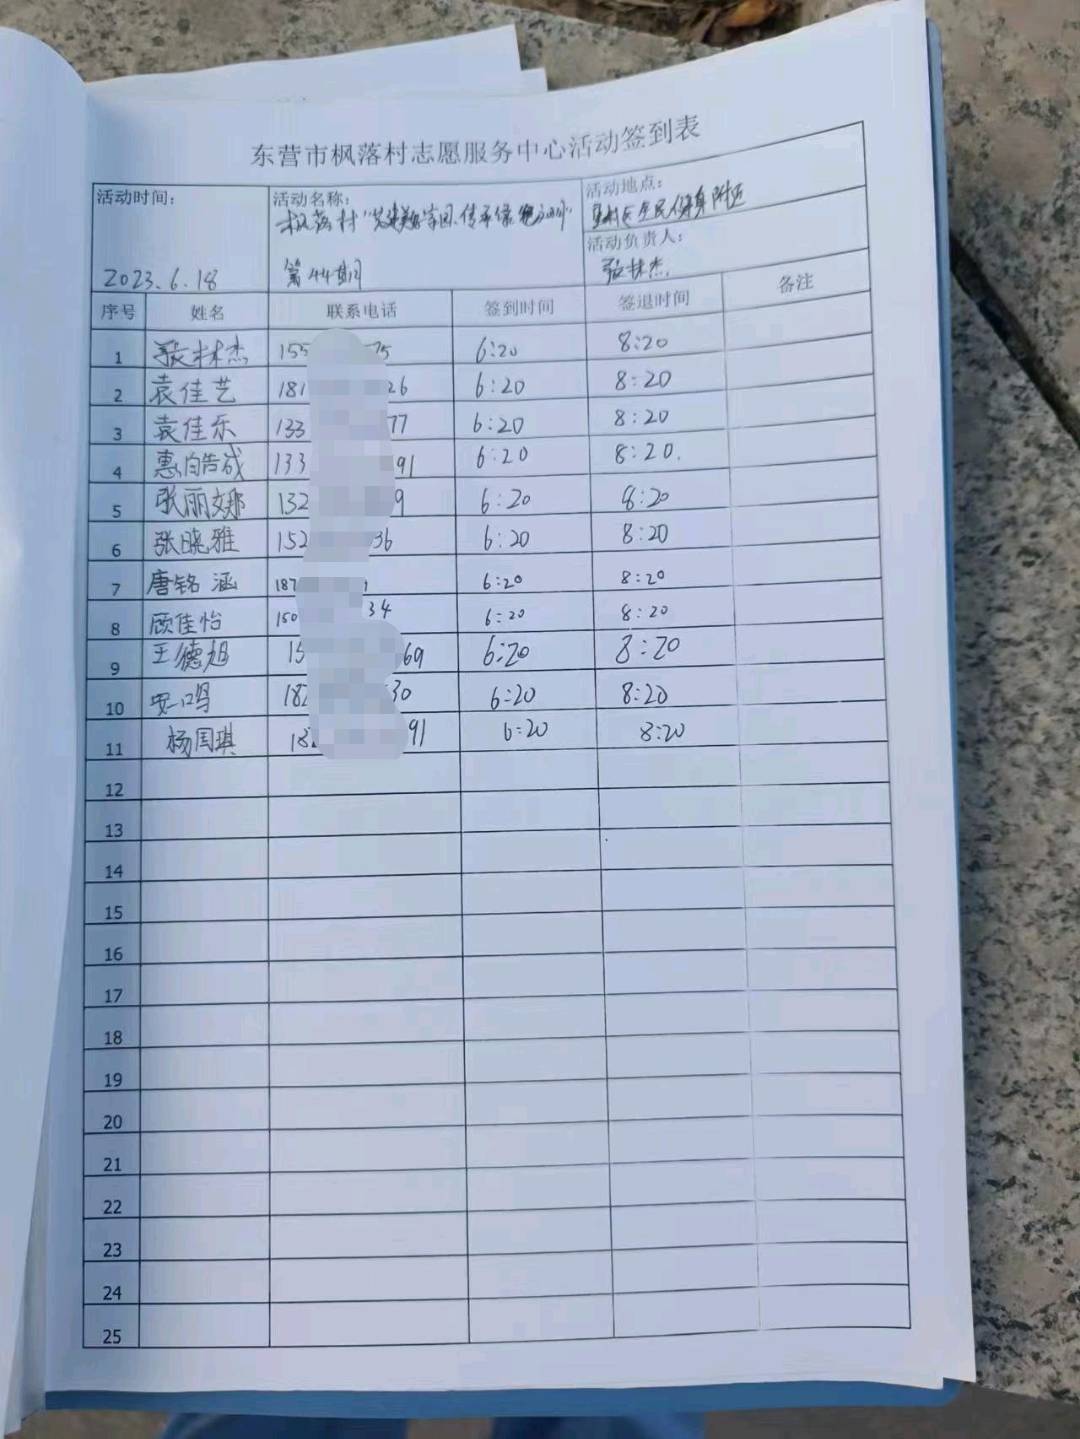 东营市枫落村志愿服务中心活动签到表
活动时间: 活动名称: 活动地点:
枫落村
活动负责人:
2023.6.18 第44期 张林杰
序号 姓名 联系电话 签到时间 签退时间 备注
1 张林杰 155 75 6:20 8:20
2 袁佳艺 181 26 6:20 8:20
3 袁佳乐 133 77 6:20 8:20
4 惠皓成 133 91 6:20 8:20.
5 张丽娜 132 9 6:20 8:20
6 张晓雅 152 36 6:20 8:20
7 唐铭涵 187 6:20 8:20
8 顾佳怡 150 34 6:20 8:20
9 王德旭 15 69 6:20 8:20
10 安一鸣 182 30 6:20 8:20
11 杨国琪 18 91 6:20 8:20
12
13
14
15
16
17
18
19
20
21
22
23
24
25